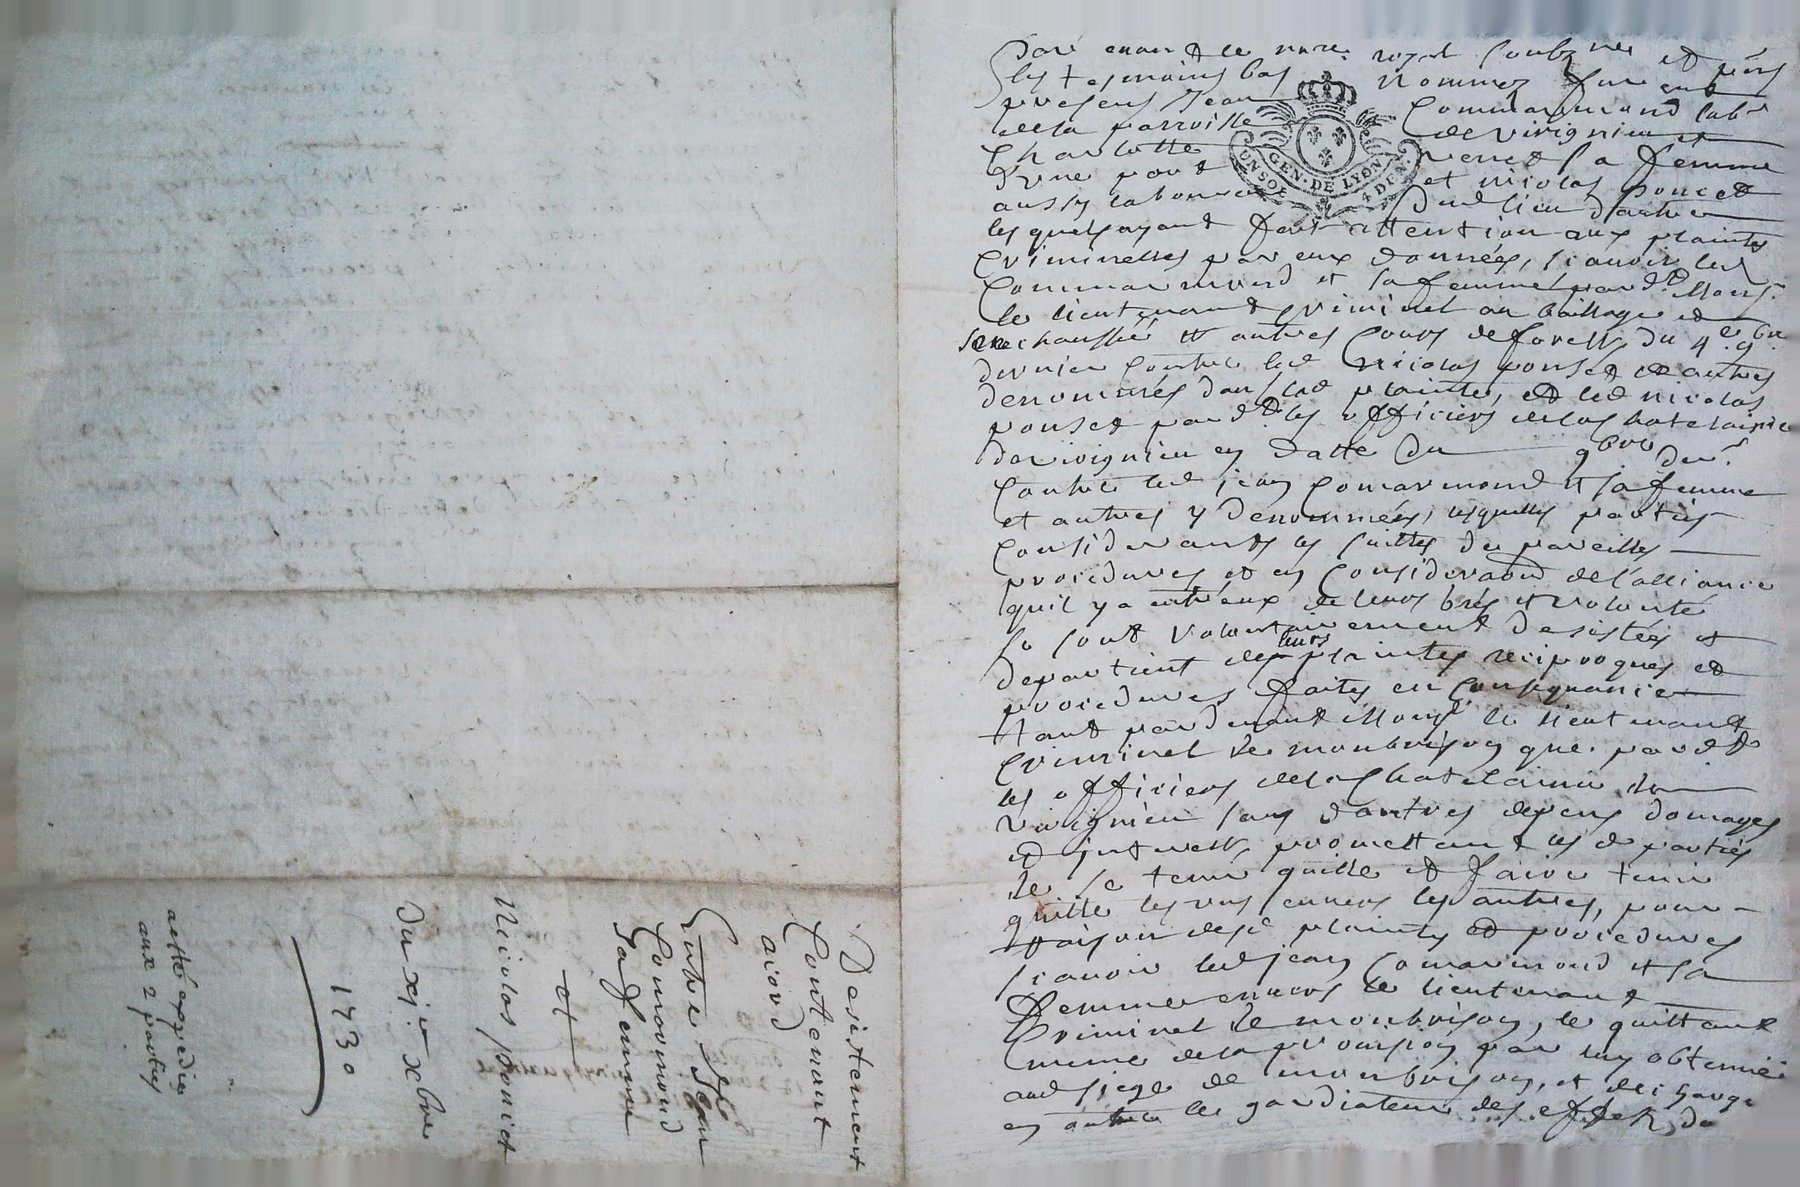 Desistement
Contenant
acord
Entre Sr Jean
Comarmond
sa femme
et
Nicolas poncet
Du xje xbre
1730
acte expedier
aux 2 parties
Par devant le nore royal soubzne et pnts
les tesmoins bas nommez fure
presens Jean Commarmond labr
de la parroisse de virignieu et
Charlotte venet sa femme
d'une part et nicolas poncet
aussy laboureur dud lieu d'autre
lesquels ayant fait attention aux plaintes
Criminelles par eux données, scauoir led
Commarmond et sa femme pard.t Monsr
le lieutenant criminel au bailliage et
senechaussée et autres Cours de forests du 4e 9bre
dernier contre led Nicolas ponset et autres
denommés dans lad plainte, et led nicolas
ponset pard.t les officiers de la chatelainie
de virignieu en datte du 9bre der.r
Contre led jean Comarmond et sa femme
et autres y denommées, lesquelles parties
Considerants les suittes de pareilles
procedures et en Consideraon de l'alliance
quil y a entr'eux de leurs grés et volonté
se sont volontairement desistées et
departient de leurs plaintes reciproques et
procedures faites en Consequance
tant pardevant Monsr le lieutenant
Criminel de montbrison que pard.t
les officiers de la Chatelainie de
virignieu sans d'autres depens domages
et interests, promettant les d parties
de se tenir quitte et faire tenir
quitte les uns enuers les autres, pour
raison desd plaintes et procedures
scauoir led jean Comarmond et sa
femme enuers le lieutenant
Criminel de montbrison, le quittant
mesme de la prouision par luy obtenuë
aud siege de montbrison, et decharge
en outre les gardiateurs des effets de
GEN. DE LYON
UN SOL 4 DEN.